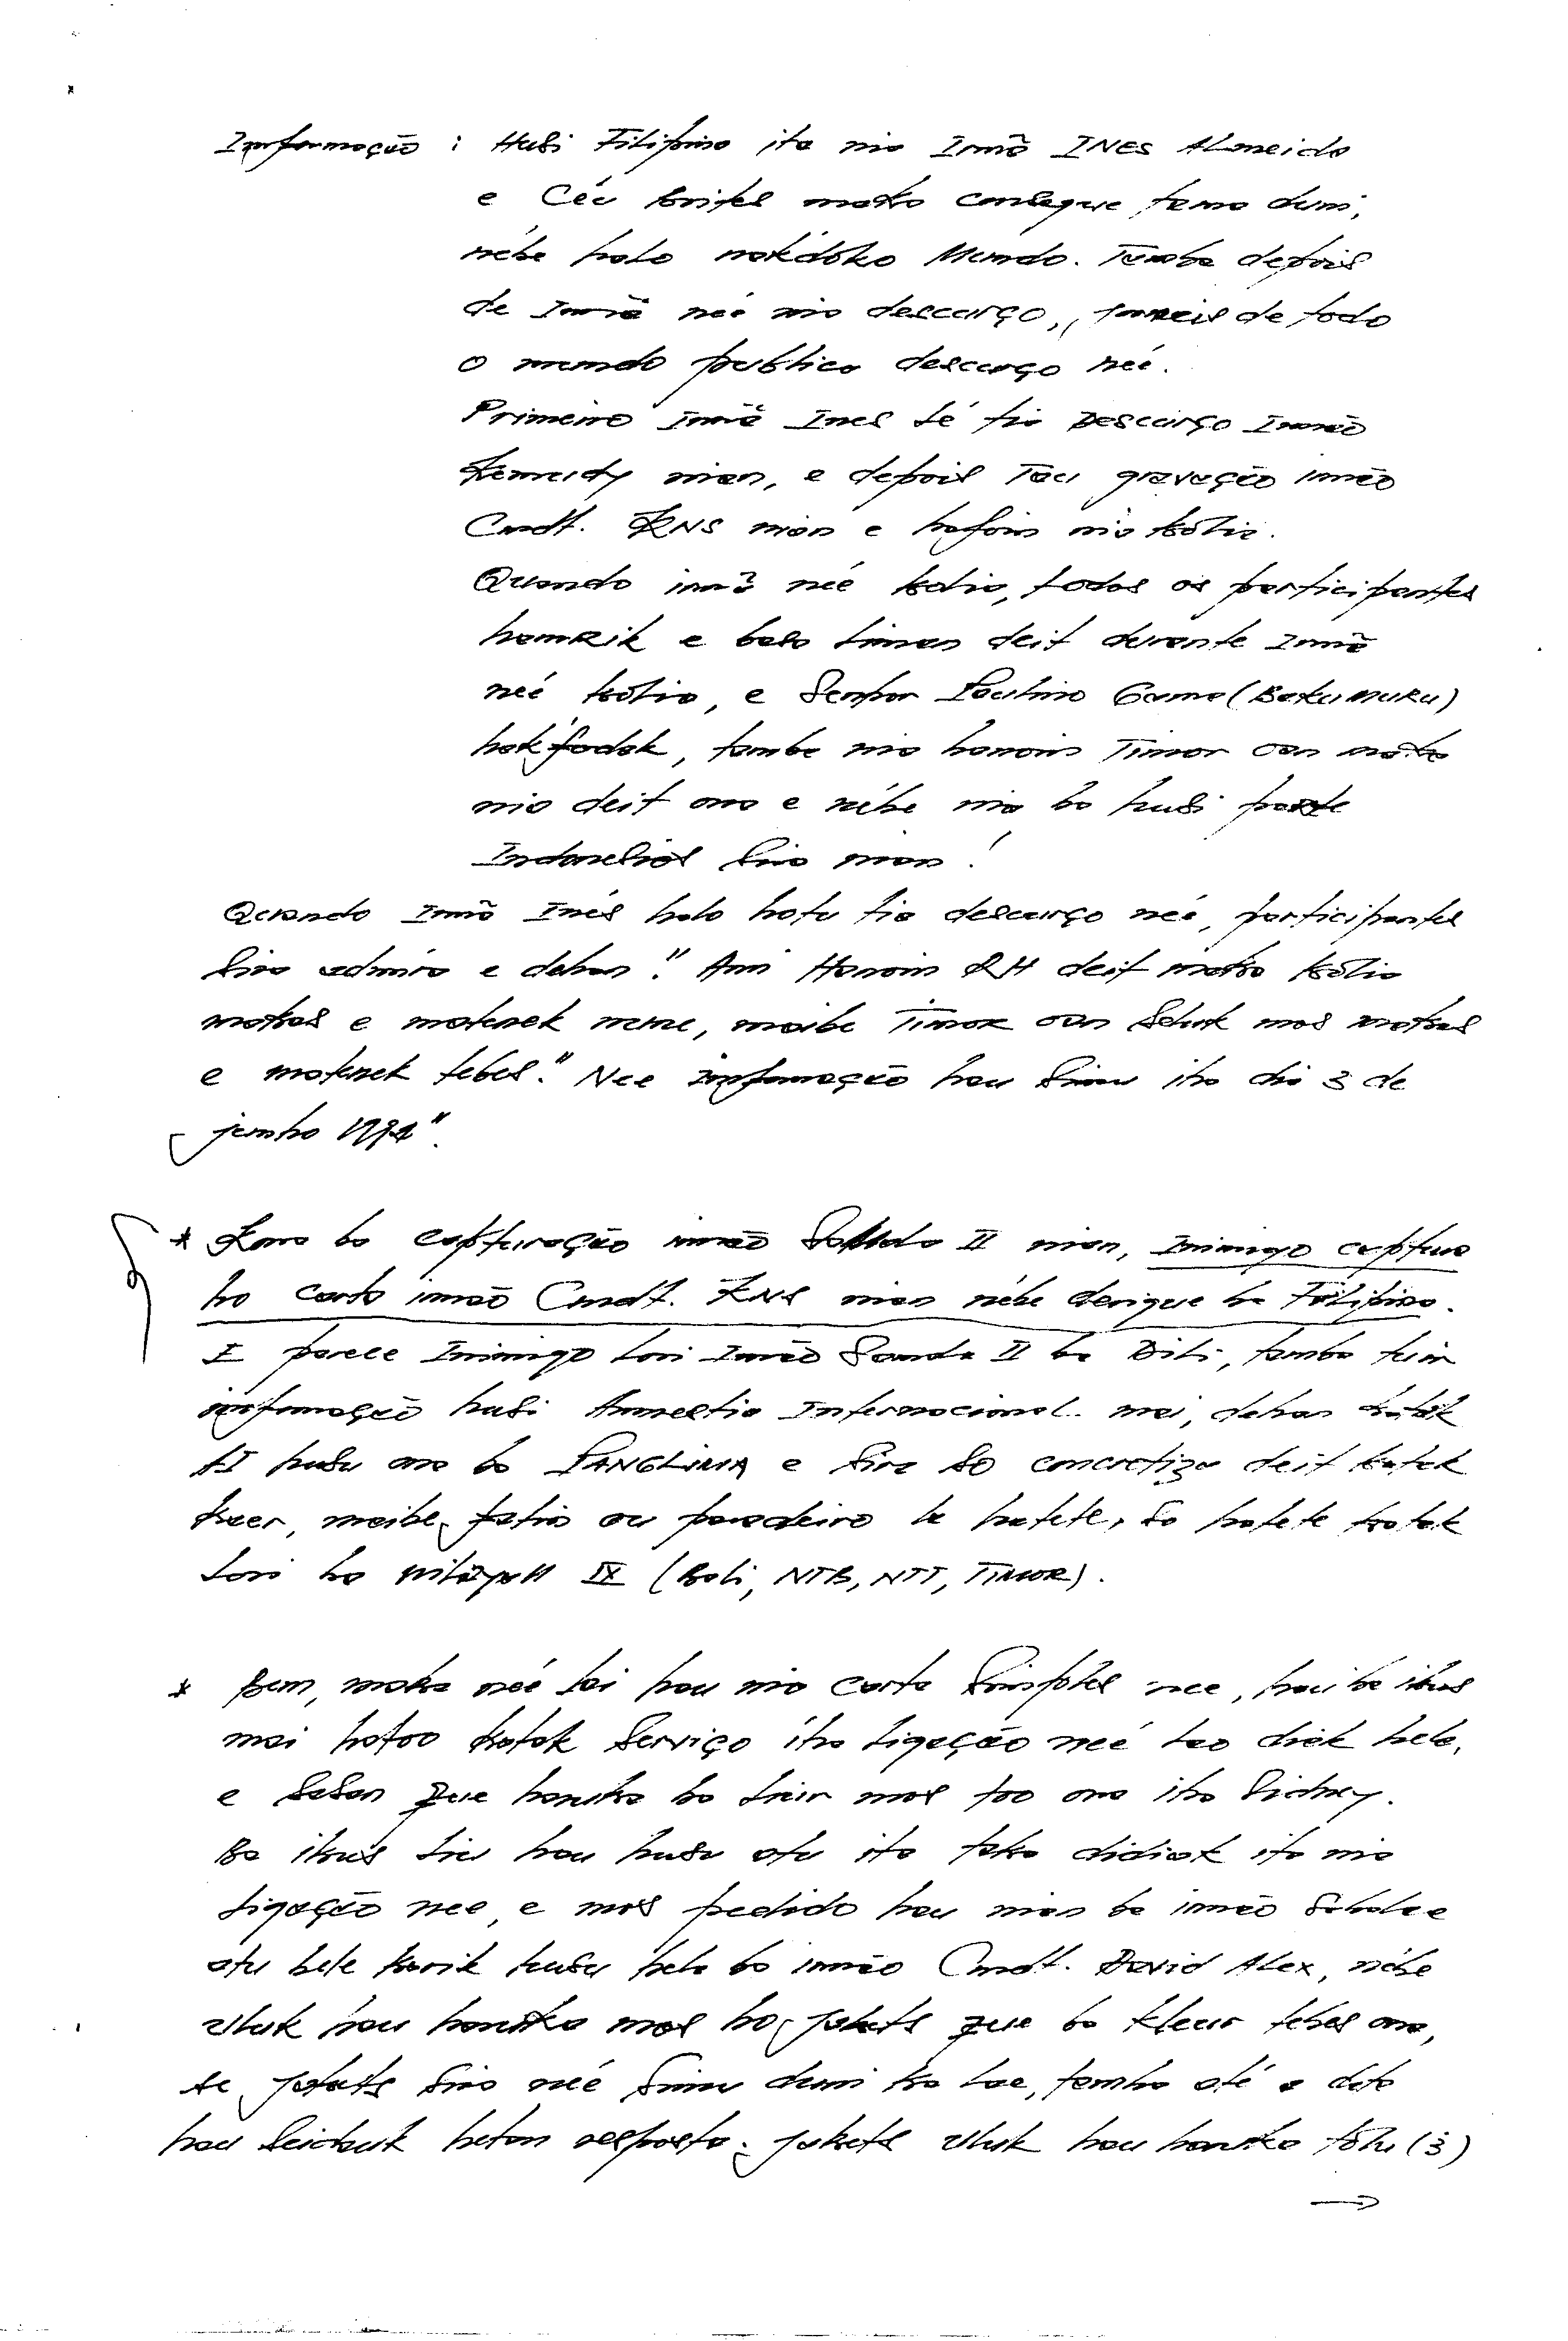 Informação : Husi Filipino ita nia Irmã INES Almeida
e Céu Brites maka consegue tama duni,
nébe halo nakdóko Mundo. Tamba depois
de Irmã neé nia descurço, jornais de todo
o mundo publica descurço neé.
Primeiro Irmã Ines lé tia Descurço Irmão
Kennedy nian, e depois Tau gravação irmão
Cmdt. KNS nian e hafoin nia kólia.
Quando irmã neé kolia, todos os participantes
hamrik e basa liman deit durante Irmã
neé kólia, e Senhor Paulino Gama (Mauk Muruk)
hakfodak, tamba nia hanoin Timor oan maka
nia deit ona e nébe nia ba husi parte
Indonesios sira nian!
Quando Irmã Inés halo hotu tia descurço neé, participantes
sira admira e dehan: " Ami Hanoin RH deit maka kólia
matras e matenek mene, maibe Timor oan Seluk mos matras
e matenek tebes." Nee informação hau simu iha dia 3 de
junho 1994".
* Kona ba capturação irmão Sabado II nian, Inimigo captura
ho carta irmão Cmdt. KNS nian nébe derigue ba Filipino.
E parece Inimigo lori Irmão Sanda II ba Dili, tamba tuir
informação husi Amnestia Internacional mai, dehan katak
AI husu ona ba PANGLIMA e sira so concretiza deit katak
kaer, maibe fatin ou paradeiro la hatete, so hatete katak
lori ba wilayah IX (Bali, NTB, NTT, TIMOR).
* Bem, maka neé lai hau nia carta simples nee, hau ba ikus
mai hatoo katak Serviço iha ligação neé lao diak hela,
e sasan que haruka ba liur mos too ona iha Sidney.
Ba ikus liu hau husu atu ita tako didiak ita nia
ligação nee, e mos pedido hau nian ba irmão Sabalae
atu bele karik husu hela ba irmão Cmdt. David Alex, nébe
uluk hau haruka mos ho jakets que ba kleur tebes ona,
se jakets sira neé simu duni ka lae, tamba até a data
hau seidauk hetan resposta. jakets uluk hau haruka tólu (3)
→